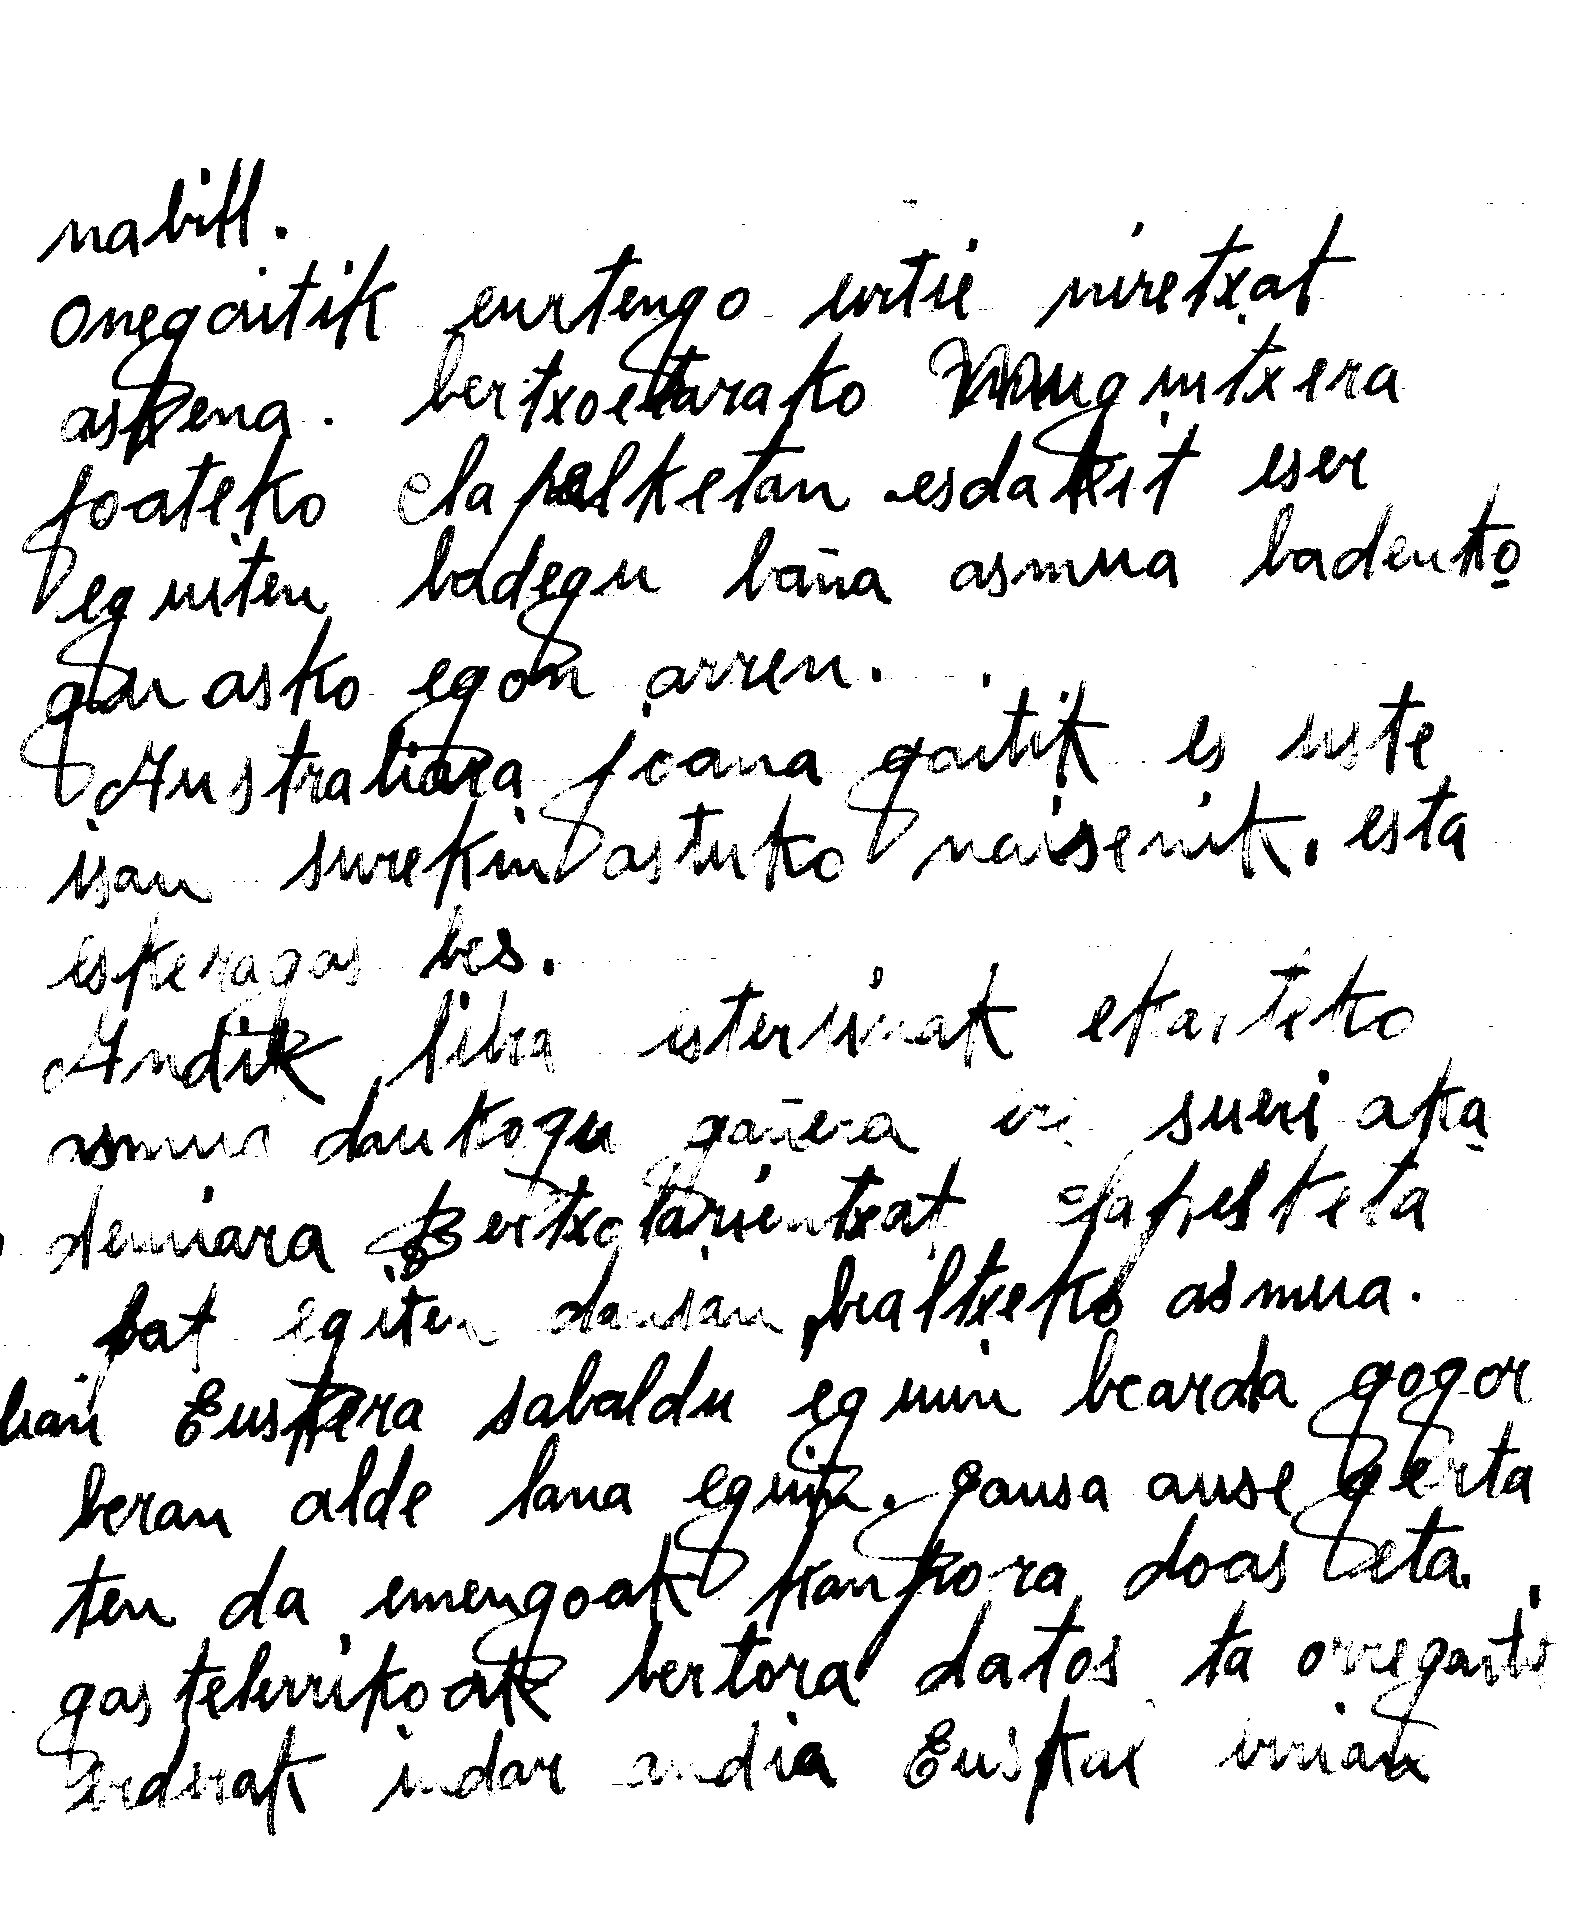 nabill.
Onegaitik eurtengo urtie niretxat
askena. bertxoetarako Munguitxera
joateko elapalketan esdakit eser
eguiten badegu baña asmua badeuko
gu asko egon arren.
Australiara joana gaitik es uste
isan surekin astuko naisenik. esta
eskeragas bes.
Andik libra esterlinak ekarteko
asmua daukogu gañera iri sueri aka
demiara Bertxolarientxat elapelketa
bat egiten dausan bialtxeko asmua.
bañ Euskera sabaldu eguin bearda gogor
beran alde lana eguiñ. gausa ause gerta
ten da emengoak kanpora doas eta
gastelerrikoak bertora datos ta orregaiti
erderak indar andia Euskal irrian